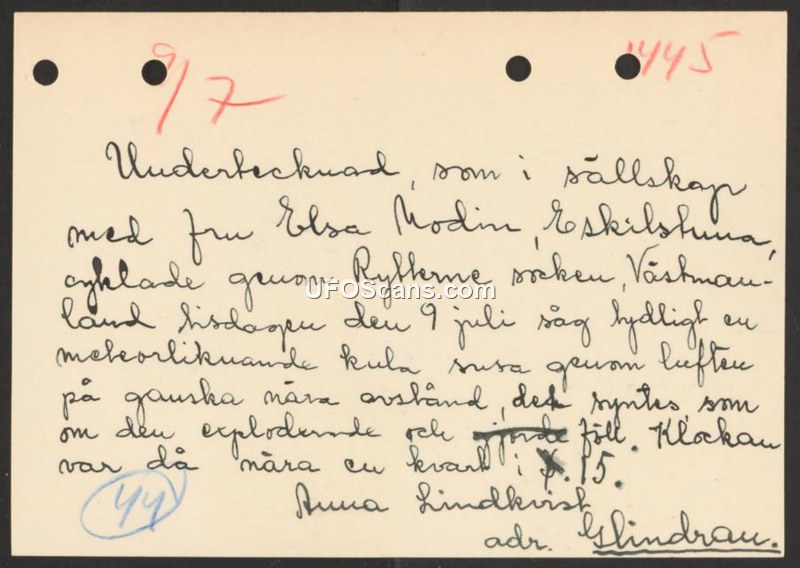 9/7
1445
Undertecknad, som i sällskap
med fru Elsa Modin, Eskilstuna,
cyklade genom Rytterne socken, Västman-
land tisdagen den 9 juli såg tydligt en
meteorliknande kula susa genom luften
på ganska nära avstånd, det syntes, som
om den exploderade och gjorde föll. Klockan
var då nära en kvart i 15.
Anna Lindkvist
adr. Glindran.
44
UFOScans.com